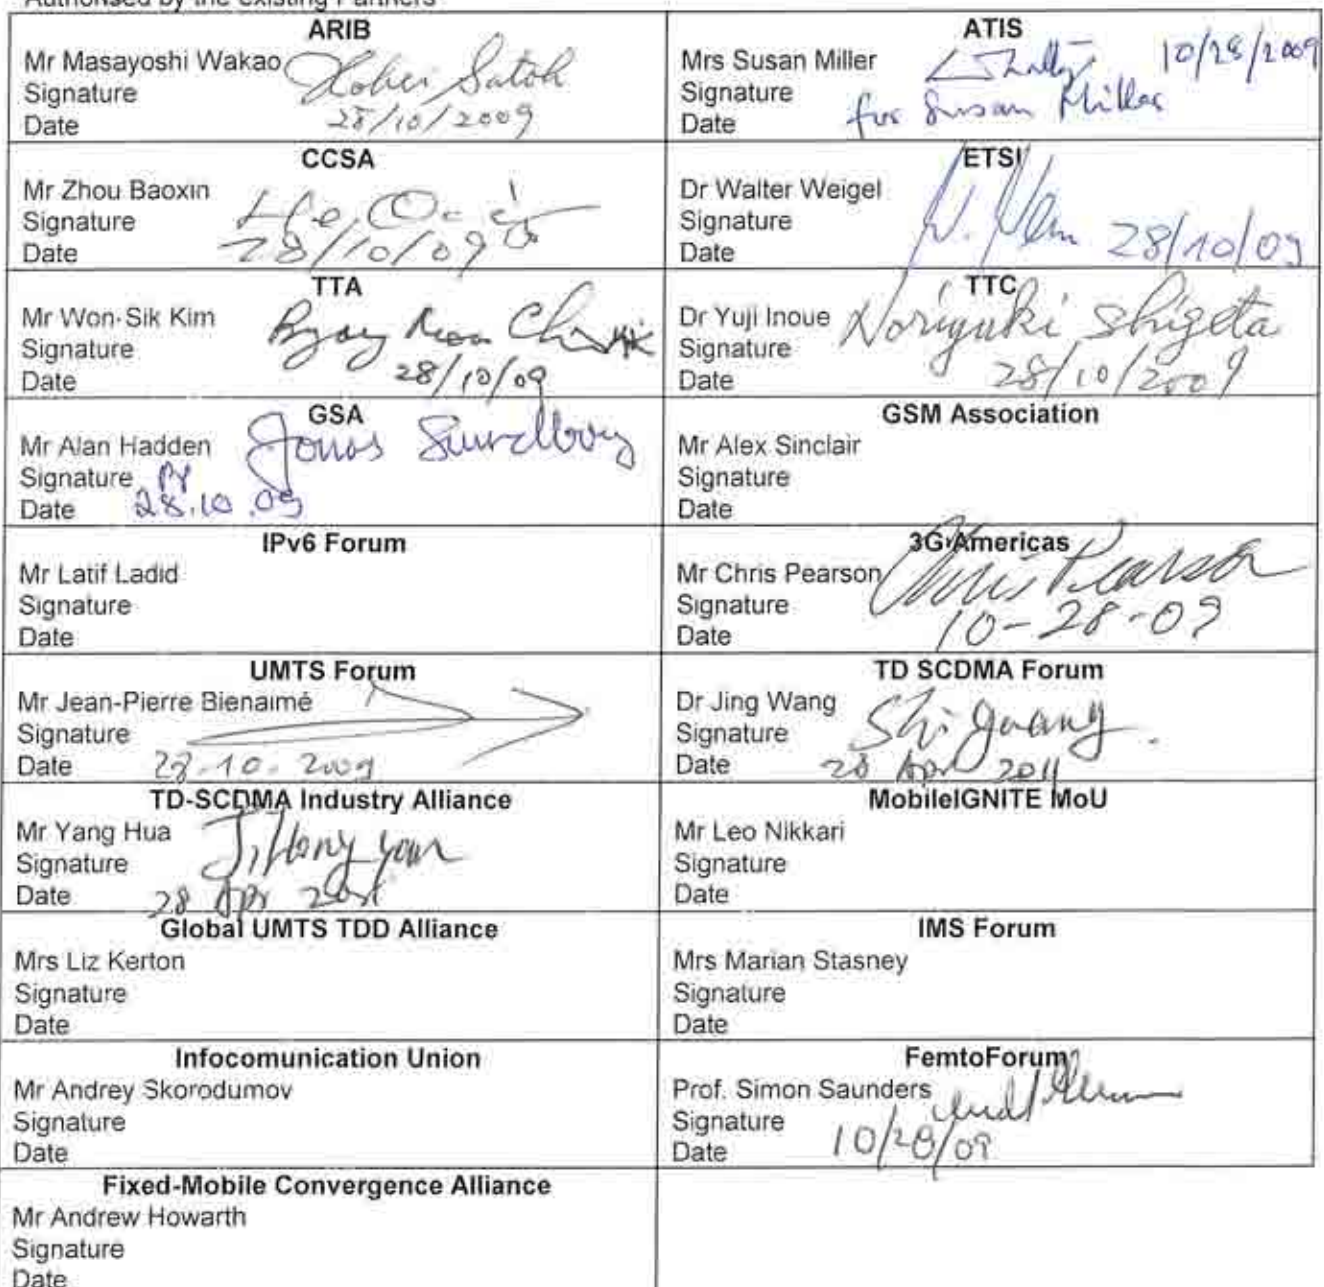 Authorised by the existing Partners
ARIB
Mr Masayoshi Wakao
Signature Kohei Satoh
Date 28/10/2009
ATIS
Mrs Susan Miller 10/28/2009
Signature
Date for Susan Miller
CCSA
Mr Zhou Baoxin
Signature
Date 28/10/09
ETSI
Dr Walter Weigel
Signature
Date 28/10/09
TTA
Mr Won-Sik Kim
Signature
Date 28/10/09
TTC
Dr Yuji Inoue Noriyuki Shigeta
Signature
Date 28/10/2009
GSA
Mr Alan Hadden Jonas Sundborg
Signature PP
Date 28.10.09
GSM Association
Mr Alex Sinclair
Signature
Date
IPv6 Forum
Mr Latif Ladid
Signature
Date
3G Americas
Mr Chris Pearson Chris Pearson
Signature
Date 10-28-09
UMTS Forum
Mr Jean-Pierre Bienaimé
Signature
Date 28-10-2009
TD SCDMA Forum
Dr Jing Wang
Signature
Date 28 Apr 2011
TD-SCDMA Industry Alliance
Mr Yang Hua
Signature
Date 28 Apr
MobileIGNITE MoU
Mr Leo Nikkari
Signature
Date
Global UMTS TDD Alliance
Mrs Liz Kerton
Signature
Date
IMS Forum
Mrs Marian Stasney
Signature
Date
Infocomunication Union
Mr Andrey Skorodumov
Signature
Date
FemtoForum
Prof. Simon Saunders
Signature
Date 10/28/09
Fixed-Mobile Convergence Alliance
Mr Andrew Howarth
Signature
Date